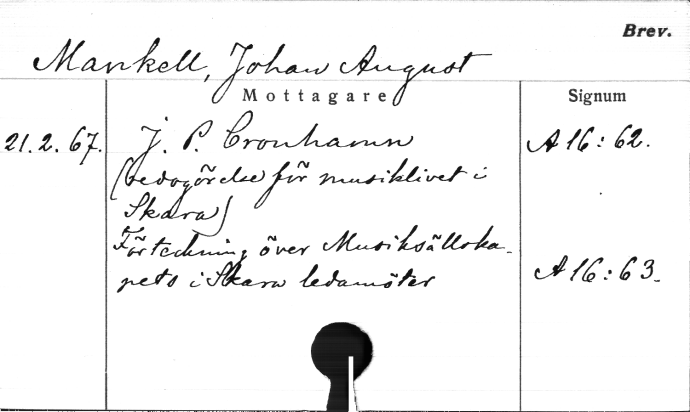 Brev.
Mankell, Johan August
Mottagare
Signum
21.2.67.
J. P. Cronhamn
A 16:62.
(redogörelse för musiklivet i
Skara)
Förteckning över Musiksällska-
pets i Skara ledamöter
A 16:63.